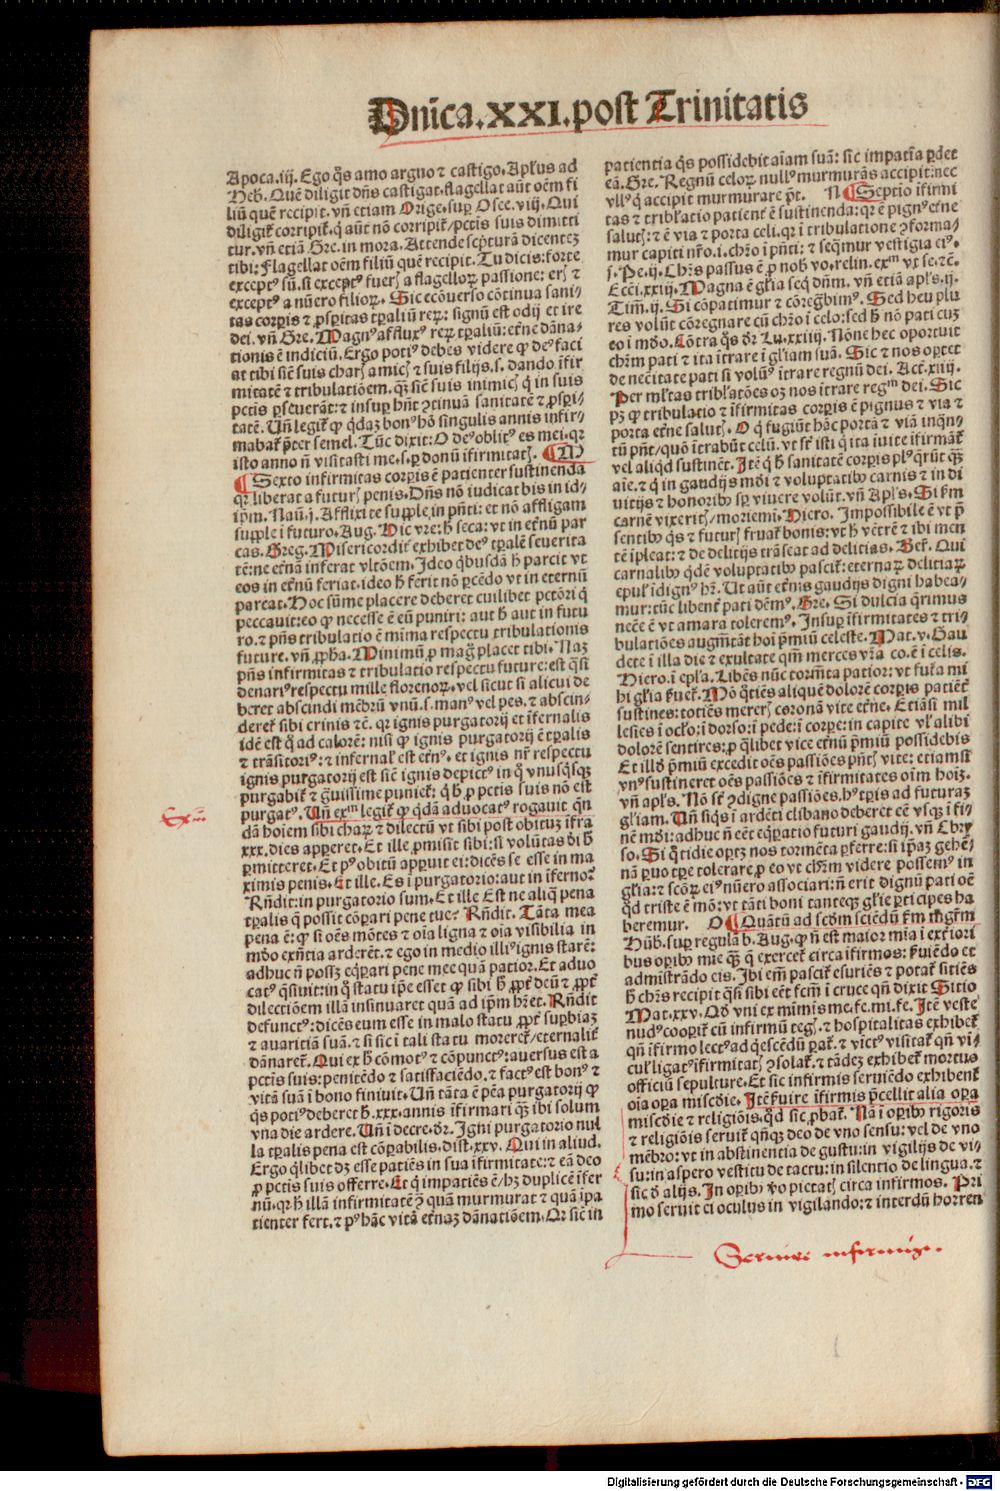 Dn̄ica.XXI.post Trinitatis
Apoca.iij. Ego q̄s amo arguo ⁊ castigo. Apl'us ad
Heb. Quē diligit dn̄s castigat. flagellat aūt oēm fi
liū quē recipit. vn̄ etiam Orige. sup Osee.viij. Qui
diligit̉ corripit̉. q̄ aūt nō corripit̉/ pctīs suis dimitti
tur. vn̄ etiā Gre. in mora. Attende scpturā dicentez
tibi: Flagellat oēm filiū quē recipit. Tu dicis: forte
except⁹ sū. si except⁹ fuer̄ a flagelloꝝ passione: er̄ ⁊
except⁹ a nūero filioꝝ. Sic ecōuerso cōtinua sani-
tas corpis ⁊ ꝓspitas tꝑaliū reꝝ: signū est odij et ire
dei. vn̄ Gre. Magn⁹ afflux⁹ reꝝ tꝑaliū: etn̄e dāna-
tionis ē indiciū. Ergo poti⁹ debes videre ꝙ de⁹ faci
at tibi sic̄ suis char̄ amic̄ ⁊ suis filijs. s. dando īfir
mitatē ⁊ tribulatiōem. q̄ȝ sic̄ suis inimic̄ q̄ in suis
pctīs ꝑseuerāt: ⁊ insuꝑ hn̄t ꝯtinuā sanitatē ⁊ ꝓspi-
tatē. Un̄ legit̉ ꝙ q̄daȝ bon⁹ hō singulis annis infir-
mabat̉ p̄ter semel. Tūc dixit: O de⁹ oblit⁹ es mei. qr
isto anno n̄ visitasti me. s. ꝑ donū īfirmitat̄. M
Sexto infirmitas corpis ē patienter sustinenda
qr liberat a futur̄ penis. Dn̄s nō iudicat bis in id-
ip̄m. Naū.j. Afflixi te supple in pn̄ti: et nō affligam
supple ī futuro. Aug. Hic vre: h̄ seca: vt in etn̄ū par
cas. Greg. Misericordit̉ exhibet de⁹ tꝑalē seuerita
tē: ne etn̄ā inferat vltōem. Ideo q̄busdā h̄ parcit vt
eos in etn̄ū feriat. ideo h̄ ferit nō ꝑcēdo vt in eternū
parcat. Hoc sūme placere deberet cuilibet pctōri q̄
peccauit: eo ꝙ necesse ē eū puniri: aut h̄ aut in futu
ro. ⁊ pn̄s tribulatio ē mīma respectu tribulationis
future. vn̄ ꝓba. Minimū ꝓ mag̊ placet tibi. Naȝ
pn̄s infirmitas ⁊ tribulatio respectu future: est q̄si
denari⁹ respectu mille florenoꝝ. vel sicut si alicui de
beret abscindi mēbrū vnū. s. man⁹ vel pes. ⁊ abscin-
deret̉ sibi crinis ⁊ē. qr ignis purgatorij et īfernalis
idē est q̄ ad calorē: nisi ꝙ ignis purgatorij ē tꝑalis
⁊ trāsitori⁹: ⁊ infernal̉ est etn̄⁹. et ignis nr̄ respectu
ignis purgatorij est sic̄ ignis depict⁹ in q̊ vnusq̄sqȝ
purgabit̉ ⁊ g̊uissime puniet̉: q̄ h̄ ꝓ pctīs suis nō est
purgat⁹. Un̄ exᵐ legit̉ ꝙ q̄dā aduocat⁹ rogauit q̄n
dā hoīem sibi charū ⁊ dilectū vt sibi post obitū īfra
xxx. dies apperet. Et ille ꝓmisit sibi: si volūtas di h̄
ꝑmitteret. Et p⁹ obitū appuit ei: dicēs se esse in ma
ximis penis. Et ille. Es ī purgatorio: aut in īferno?
Rn̄dit: in purgatorio sum. Et ille Est ne aliq̄ pena
tꝑalis q̄ possit cōpari pene tue? Rn̄dit. Tāta mea
pena ē: ꝙ si oēs mōtes ⁊ oīa ligna ⁊ oīa visibilia in
mūdo exn̄tia arderēt. ⁊ ego in medio illi⁹ ignis starē:
adhuc n̄ possȝ eq̄pari pene mee quā patior. Et aduo
cat⁹ q̄siuit: in q̊ statu ip̄e esset ꝙ sibi h̄ ꝓpt̄ deū ⁊ ꝓpt̄
dilectiōem illā insinuaret quā ad ip̄m hr̄et. Rn̄dit
defunct⁹: dicēs eum esse in malo statu ꝓpt̄ supbiaȝ
⁊ auaritiā suā. ⁊ si sic ī tali statu moreret̉/ eternalit̉
dānaret̉. Qui ex h̄ cōmot⁹ ⁊ cōpunct⁹: auersus est a
pctīs suis: penitēdo ⁊ satisfaciēdo. ⁊ fact⁹ est bon⁹ ⁊
vitā suā ī bono finiuit. Un̄ tāta ē pēa purgatorij ꝙ
q̄s poti⁹ deberet h̄.xxx. annis īfirmari q̄ȝ ibi solum
vna die ardere. Un̄ ī decre. dr̄. Igni purgatorio nul
la tꝑalis pena est cōpabilis. dist.xxv. Qui in aliud.
Ergo q̄libet dȝ esse patiēs in sua īfirmitate: ⁊ eā deo
ꝓ pctīs suis offerre. Et q̄ impatiēs ē/ hȝ duplicē īfer
nū. qr h̄ illā infirmitatē ꝯ̄ quā murmurat ⁊ quā īpa
tienter fert. ⁊ p⁹ hāc vitā etn̄aȝ dānatiōem. Qr sic̄ in
patientia q̄s possidebit aīam suā: sic̄ impatīa ꝑdet
eā. Gre. Regnū celoꝝ null⁹ murmurās accipit: nec
vll⁹ q̄ accipit murmurare pt̄. N Septīo īfirmi
tas ⁊ tribl'atio patient̉ ē sustinenda: qr ē pign⁹ etn̄e
salut̄: ⁊ ē via ⁊ porta celi. qr ī tribulatione ꝯforma-
mur capiti nr̄o. i. chr̄o ī pn̄ti: ⁊ seq̄mur vestigia ei⁹.
j. Pe.ij. Chr̄s passus ē ꝓ nob̄ vo. relin. exᵐ vt se. ⁊ē.
Ecci.xxiij. Magna ē gl'ia seq̄ dn̄m. vn̄ etiā apl's.ij.
Tim̄.ij. Si cōpatimur ⁊ cōregb̄im⁹. Sed heu plu
res volūt cōregnare cū chr̄o ī celo: sed h̄ nō pati cuȝ
eo ī mūdo. Cōtra q̄s dr̄ Lu.xxiiij. Nōne hec oportuit
chr̄m pati ⁊ ita ītrare ī gl'iam suā. Sic ⁊ nos oportet
de necītate pati si volum⁹ ītrare regnū dei. Act.xiiij.
Per ml'tas tribl'atōes oȝ nos ītrare regᵐ dei. Sic
pȝ ꝙ tribulatio ⁊ īfirmitas corpis ē pignus ⁊ via ⁊
porta etn̄e salut̄. O q̄ fugiūt hāc portā ⁊ viā inq̄n-
tū pn̄t/ quō ītrabūt celū. vt sr̄ isti q̄ ita iuite īfirmāt̉
vel aliqd sustinēt. Itē q̄ h̄ sanitatē corpis pl⁹ q̄rūt q̄ȝ
aīe. ⁊ q̄ in gaudijs mūdi ⁊ voluptatibꝰ carnis ⁊ in di
uitijs ⁊ honoribꝰ sꝑ viuere volūt. vn̄ Apl's. Si ẜm
carnē vixerit̄/ moriemī. Hiero. Impossibile ē vt p̄
sentibꝰ q̄s ⁊ futur̄ fruat̉ bonis: vt h̄ vētrē ⁊ ibi men
tē īpleat: ⁊ de delitijs trāseat ad delitias. Ber̄. Qui
carnalibꝰ q̄dē voluptatibꝰ pascit̉: eternaꝝ delitiaꝝ
epul' īdign⁹ hr̄. Ut aūt etn̄is gaudijs digni habea-
mur: tūc libent̉ pati dēm⁹. Gre. Si dulcia q̄rimus
necē ē vt amara tolerem⁹. Insup īfirmitates ⁊ tri-
bulatiōes augmētāt hoī p̄miū celeste. Mat.v. Gau
dete ī illa die ⁊ exultate qm̄ merces vr̄a co. ē ī celis.
Hiero. ī epl'a. Libēs nūc tormēta patior: vt futura mi
hi gl'ia ẜuet̉. Mō q̄tiēs aliquē dolorē corpis patiēt̉
sustines: totiēs merer̄ coronā vite etn̄e. Etiāsi mil
lesies ī ocl'o: ī dorso: ī pede: ī corpe: in capite vl' alibi
dolorē sentires: ꝓ q̄libet vice etn̄ū p̄miū possidebis
Et illud p̄miū excedit oēs passiōes pn̄t̄ vite: etiamsi
vn⁹ sustineret oēs passiōes ⁊ īfirmitates oīm hoīȝ.
vn̄ apl's. Nō st̄ ꝯdigne passiōes. h⁹ tpis ad futuraȝ
gl'iam. Un̄ siq̄s ī ardēti clibano deberet eē vsqȝ ī fi-
nē mūdi: adhuc n̄ eēt eq̄patio futuri gaudij. vn̄ Chry
so. Si q̄tidie opȝ nos tormēta ꝑferre: si ip̄aȝ gehē-
nā paruo tpe tolerare/ ꝓ eo vt chr̄m videre possem⁹ in
gl'ia: ⁊ scōꝝ ei⁹ nūero associari: n̄ erit dignū pati oē
qd triste ē mō: vt tāti boni tanteqȝ gl'ie ꝑticipes ha
beremur. O Quātū ad scd̄m sciēdū ẜm mgr̄m
Hūb. sup regulā b. Aug. ꝙ n̄ est maior mīa ī exteriori
bus opibꝰ mīe q̄ȝ q̄ exercet̉ circa īfirmos: ẜuiēdo et
admīstrādo eis. Ibi em̄ pascit̉ esuriēs ⁊ potat̉ sitiēs
h̄ chr̄s recipit q̄si sibi eēt fcm̄ ī cruce qn̄ dixit Sitio
Mat.xxv. Qd vni ex mīmis me. fe. mi. fe. Itē veste
nud⁹ coopit̉ cū infirmū teḡ. ⁊ hospitalitas exhibet̉
qn̄ īfirmo lect⁹ ad q̄escēdū pat̉. ⁊ vict⁹ visitat̉ qn̄ vī-
cul' ligat⁹ īfirmitat̄ ꝯsolat̉. ⁊ tādeȝ exhibet̉ mortuo
officiū sepulture. Et sic infirmis seruiēdo exhibent̉
oīa opa miscd̄ie. Itē ẜuire īfirmis p̄cellit alia opa
miscd̄ie ⁊ religiōis. qd sic ꝓbat̉. Nā ī opibꝰ rigoris
⁊ religiōis seruit̉ qn̄qȝ deo de vno sensu: vel de vno
mēbro: vt in abstinentia de gustu: in vigilijs de vi-
su: in aspero vestitu de tactu: in silentio de lingua. ⁊
sic d̄ alijs. In opibꝰ vo pietat̄ circa infirmos. Pri
mo seruit ei oculus in vigilando: ⁊ interdū horren
Seruire infirmis.
Digitalisierung gefördert durch die Deutsche Forschungsgemeinschaft - DFG